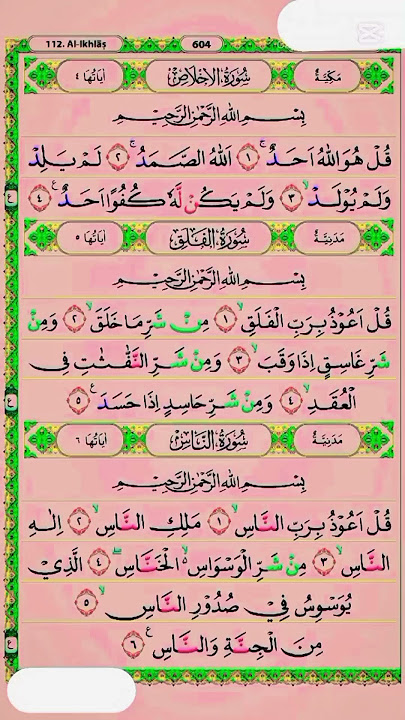 112. Al-Ikhlāṣ 604
مَكِّيَّةٌ سُورَةُ الْإِخْلَاصِ اٰيَاتُهَا ٤
بِسْمِ اللهِ الرَّحْمٰنِ الرَّحِيْمِ
قُلْ هُوَ اللهُ اَحَدٌۚ ١ اَللهُ الصَّمَدُۚ ٢ لَمْ يَلِدْ
وَلَمْ يُوْلَدْۙ ٣ وَلَمْ يَكُنْ لَّهٗ كُفُوًا اَحَدٌࣖ ٤
مَدَنِيَّةٌ سُورَةُ الْفَلَقِ اٰيَاتُهَا ٥
بِسْمِ اللهِ الرَّحْمٰنِ الرَّحِيْمِ
قُلْ اَعُوْذُ بِرَبِّ الْفَلَقِۙ ١ مِنْ شَرِّ مَا خَلَقَۙ ٢ وَمِنْ
شَرِّ غَاسِقٍ اِذَا وَقَبَۙ ٣ وَمِنْ شَرِّ النَّفّٰثٰتِ فِى
الْعُقَدِۙ ٤ وَمِنْ شَرِّ حَاسِدٍ اِذَا حَسَدَࣖ ٥
مَدَنِيَّةٌ سُورَةُ النَّاسِ اٰيَاتُهَا ٦
بِسْمِ اللهِ الرَّحْمٰنِ الرَّحِيْمِ
قُلْ اَعُوْذُ بِرَبِّ النَّاسِۙ ١ مَلِكِ النَّاسِۙ ٢ اِلٰهِ
النَّاسِۙ ٣ مِنْ شَرِّ الْوَسْوَاسِ ەۙ الْخَنَّاسِۖ ٤ الَّذِيْ
يُوَسْوِسُ فِيْ صُدُوْرِ النَّاسِۙ ٥
مِنَ الْجِنَّةِ وَالنَّاسِࣖ ٦
ع
ع
ع